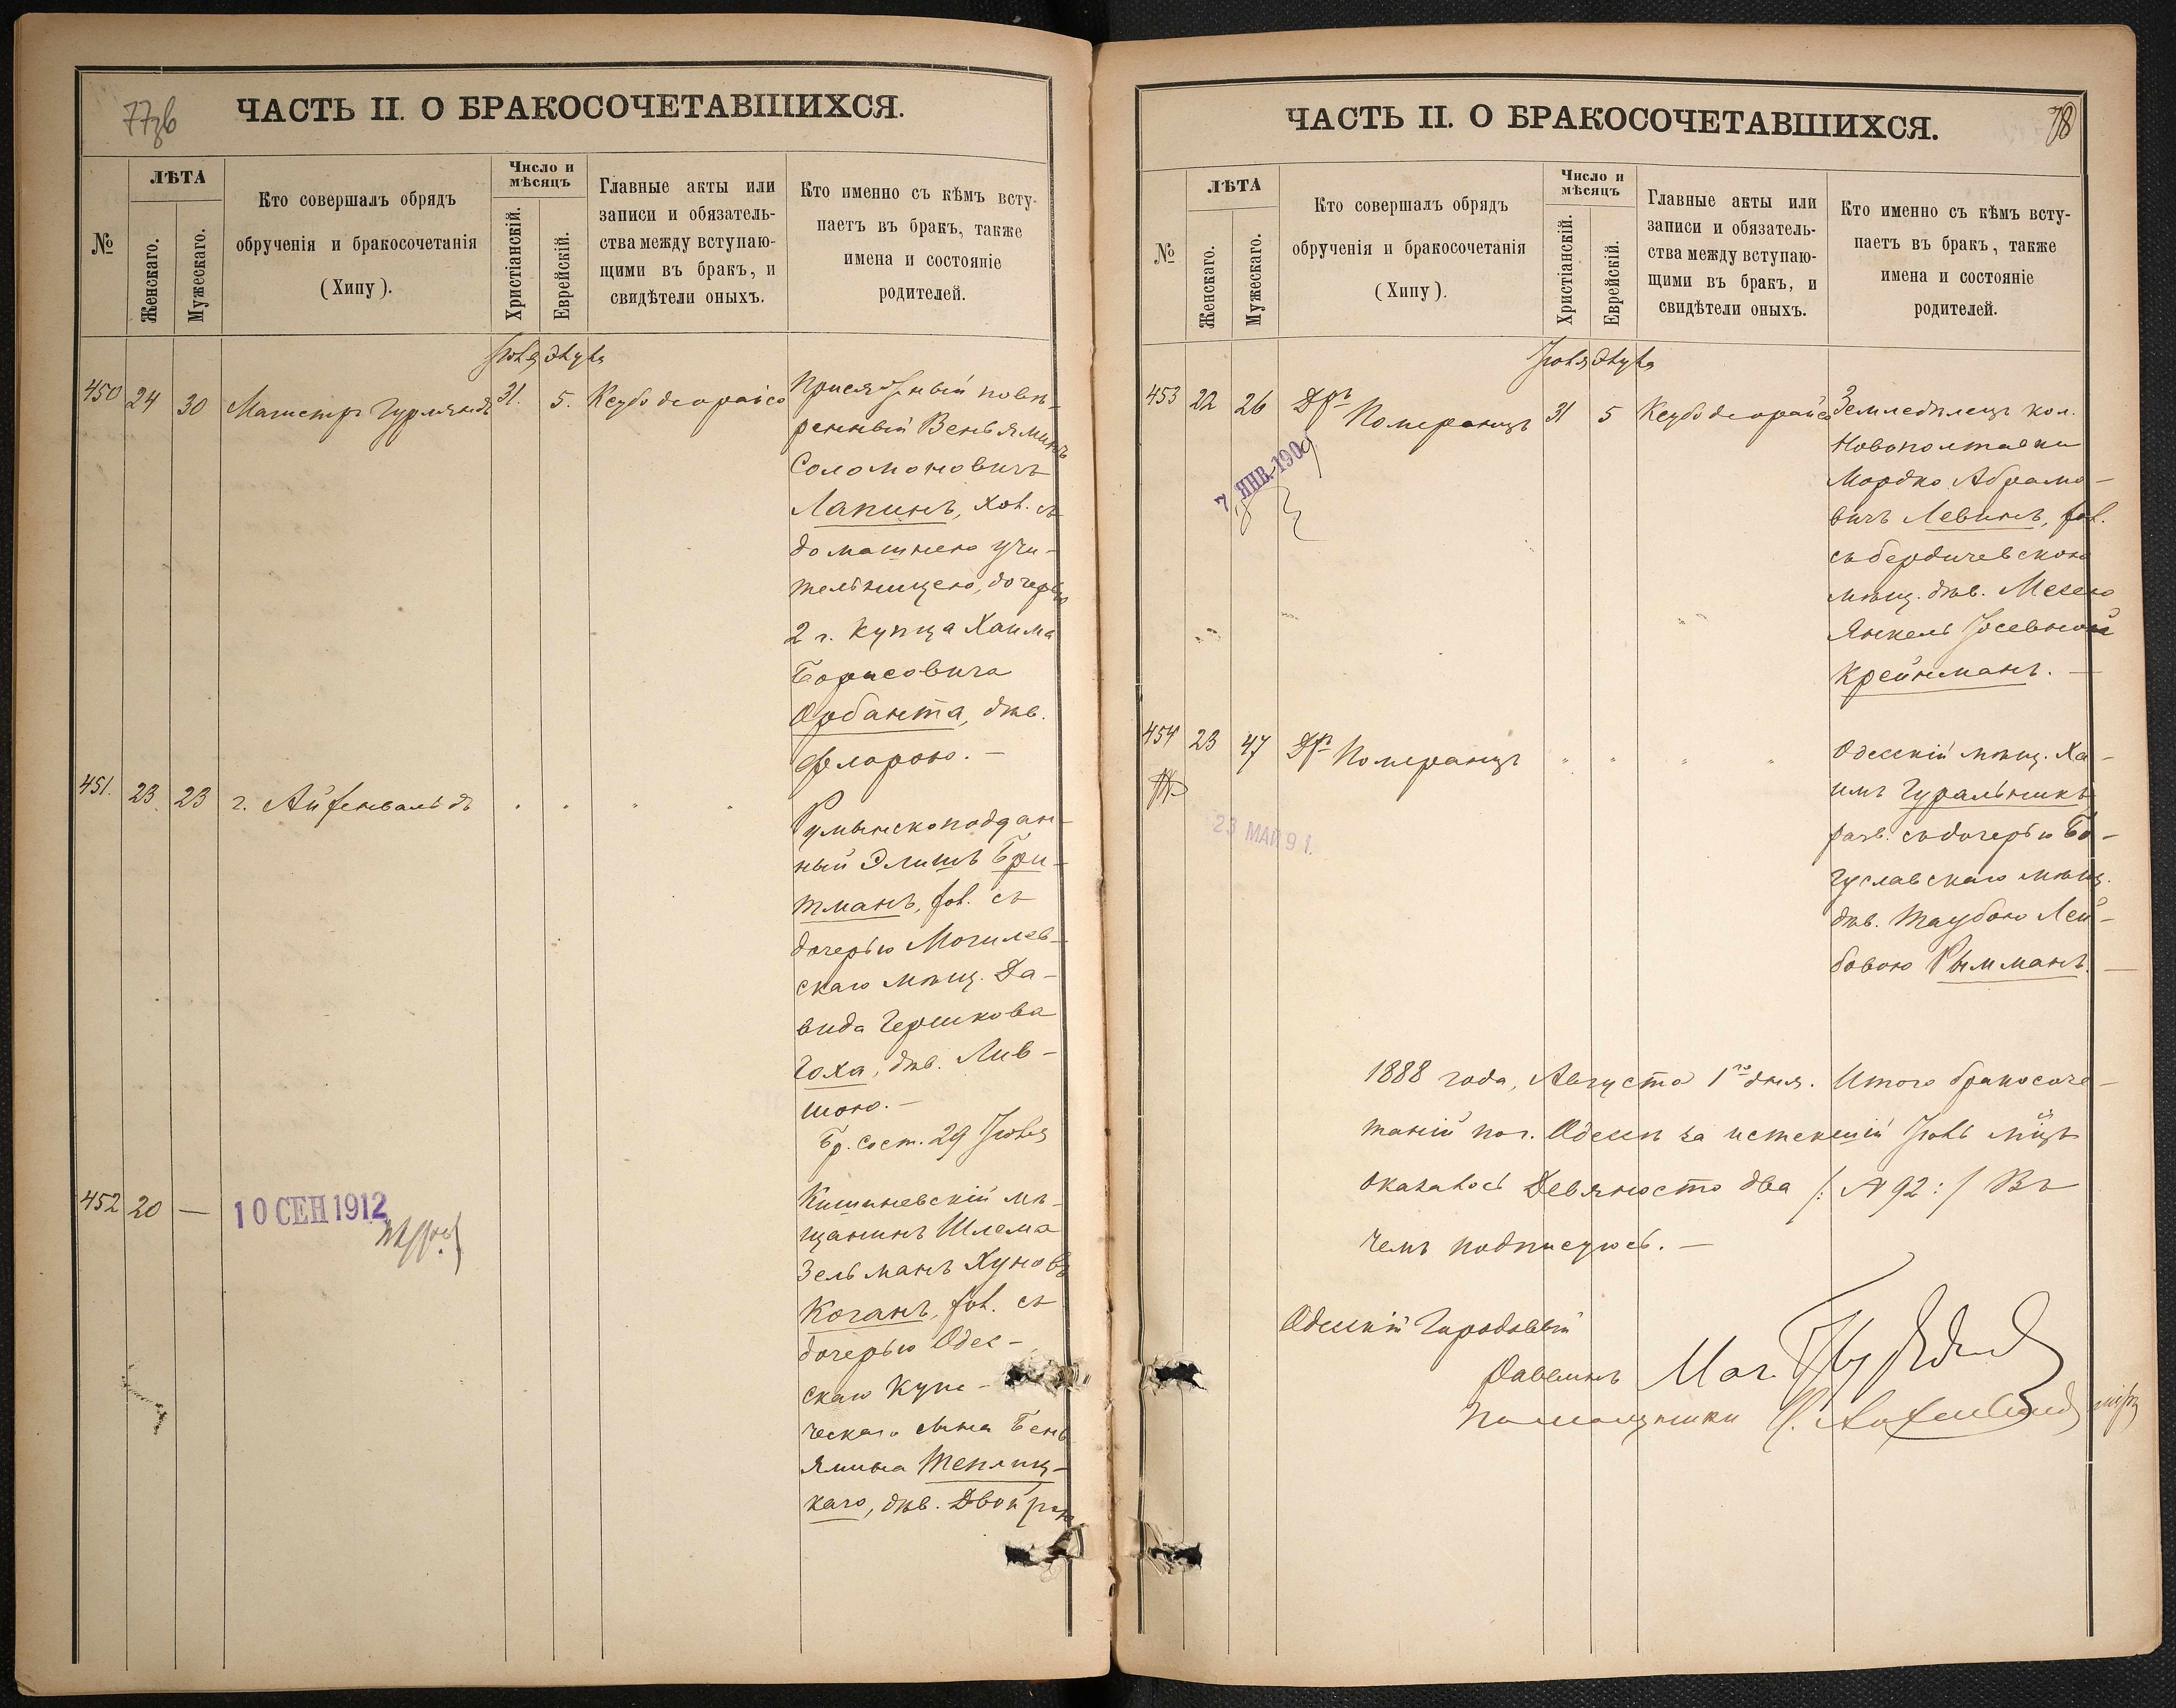 77об
ЧАСТЬ II. О БРАКОСОЧЕТАВШИХСЯ.
№
ЛѢТА
Женскаго.
Мужескаго.
Кто совершалъ обрядъ
обрученія и бракосочетанія
(Хипу).
Число и
мѣсяцъ
Христіанскій.
Еврейскій.
Главные акты или
записи и обязатель-
ства между вступаю-
щими въ бракъ, и
свидѣтели оныхъ.
Кто именно съ кѣмъ всту-
паетъ въ бракъ, также
имена и состояніе
родителей.
Іюля
450 24 30 Магистръ Гурляндъ 31. 5. Ксубо деорайсо Присяжный повѣ-
ренный Веньяминъ
Соломоновичъ
Лапинъ, хол. съ
домашнею учи-
тельницею, дочерью
2 г. купца Хаима
Борисовича
Орбанта, дѣв.
Флорою. —
451. 23 23 г. Айзенвальдъ " " " " Румынскоподдан-
ный Элишъ Бри-
тманъ, хол. съ
дочерью Могилев-
скаго мѣщ. Да-
вида Гершкова
Гоха, дѣв. Лив-
шою. —
Бр. сост. 29 Іюля
452 20 — 10 СЕН 1912 Кишиневскій мѣ-
щанинъ Шлема
Зельманъ Хуновъ
Коганъ, хол. съ
дочерью Одес-
скаго купе-
ческаго сына Бень
ямина Теплиц-
каго, дѣв. Двойрою
78
ЧАСТЬ II. О БРАКОСОЧЕТАВШИХСЯ.
№
ЛѢТА
Женскаго.
Мужескаго.
Кто совершалъ обрядъ
обрученія и бракосочетанія
(Хипу).
Число и
мѣсяцъ
Христіанскій.
Еврейскій.
Главные акты или
записи и обязатель-
ства между вступаю-
щими въ бракъ, и
свидѣтели оныхъ.
Кто именно съ кѣмъ всту-
паетъ въ бракъ, также
имена и состояніе
родителей.
Іюля
453 22 26 Дръ Померанцъ 31 5 Ксубо деорайсо Земледѣлецъ кол.
Новополтавки
Мордко Абрамо-
вичъ Левинъ, хол.
съ бердичевскою
мѣщ. дѣв.
Янкель Іосевной
Крейнманъ. —
7 ЯНВ. 1909
454 23 47 Дръ Померанцъ " " " " Одесскій мѣщ. Ха-
имъ Гуральникъ
разв. съ дочерью Бо-
гуславскаго мѣщ.
дѣв. Таубою Лей-
бовою Рымманъ. —
23 МАЙ 91.
1888 года, Августа 1го дня. Итого бракосоче-
таній по г. Одессѣ за истекшій Іюль мѣцъ
оказалось Девяносто два /: № 92 :/ Въ
чемъ подписуюсь. —
Одесскій Городовый
Раввинъ Маг.
Помощники